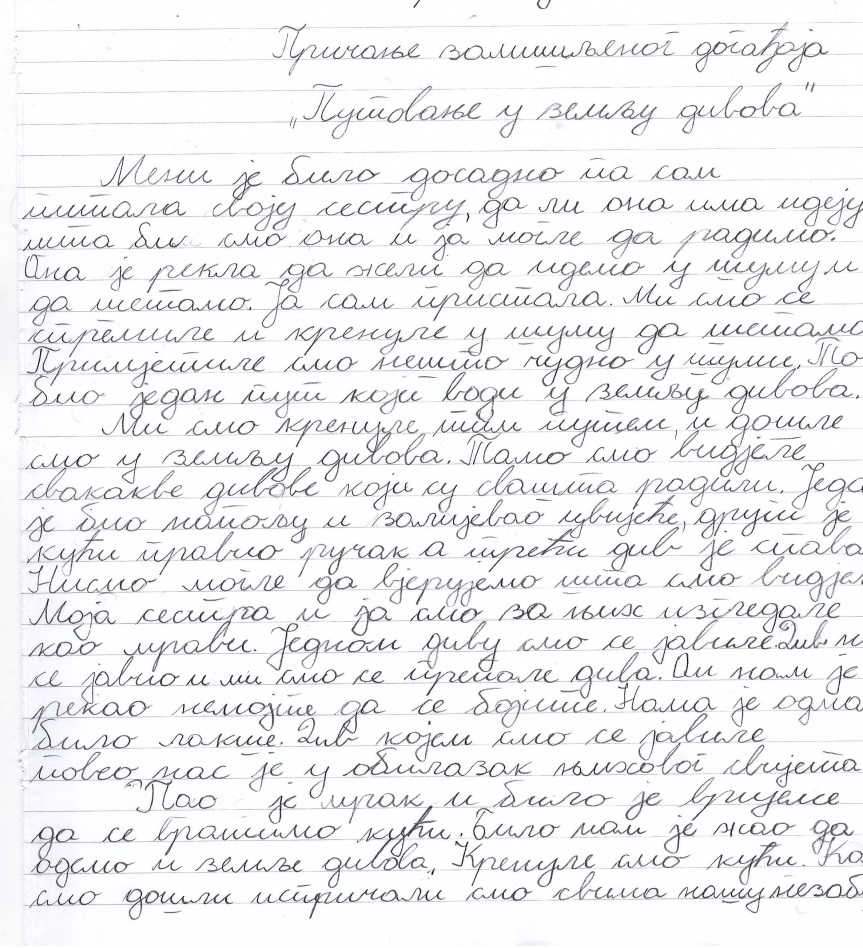 Причање замишљеног догађаја
„Путовање у земљу дивова"
Мени је било досадно па сам
питала своју сестру, да ли она има идеју
шта би смо она и ја могле да радимо.
Она је рекла да жели да идемо у шуму и
да шетамо. Ја сам пристала. Ми смо се
спремиле и кренуле у шуму да шетамо
Примјетиле смо нешто чудно у шуми. То
био један пут који води у земљу дивова.
Ми смо кренуле тим путем, и дошле
смо у земљу дивова. Тамо смо видјеле
свакакве дивове који су свашта радили. Једа
је био напољу и залијевао цвијеће, други је
кући правио ручак а трећи див је спава
Нисмо могле да вјерујемо шта смо видјел
Моја сестра и ја смо за њих изгледале
као мрави. Једном диву смо се јавиле. Див н
се јавио и ми смо се препале дива. Он нам је
рекао немојте да се бојите. Нама је одма
било лакше. Див којем смо се јавиле
повео нас је у обилазак њиховог свијета
Пао је мрак и било је вријеме
да се вратимо кући. Било нам је жао да
одемо и земље дивова. Кренуле смо кући. Ка
смо дошли испричали смо свима нашу незаб